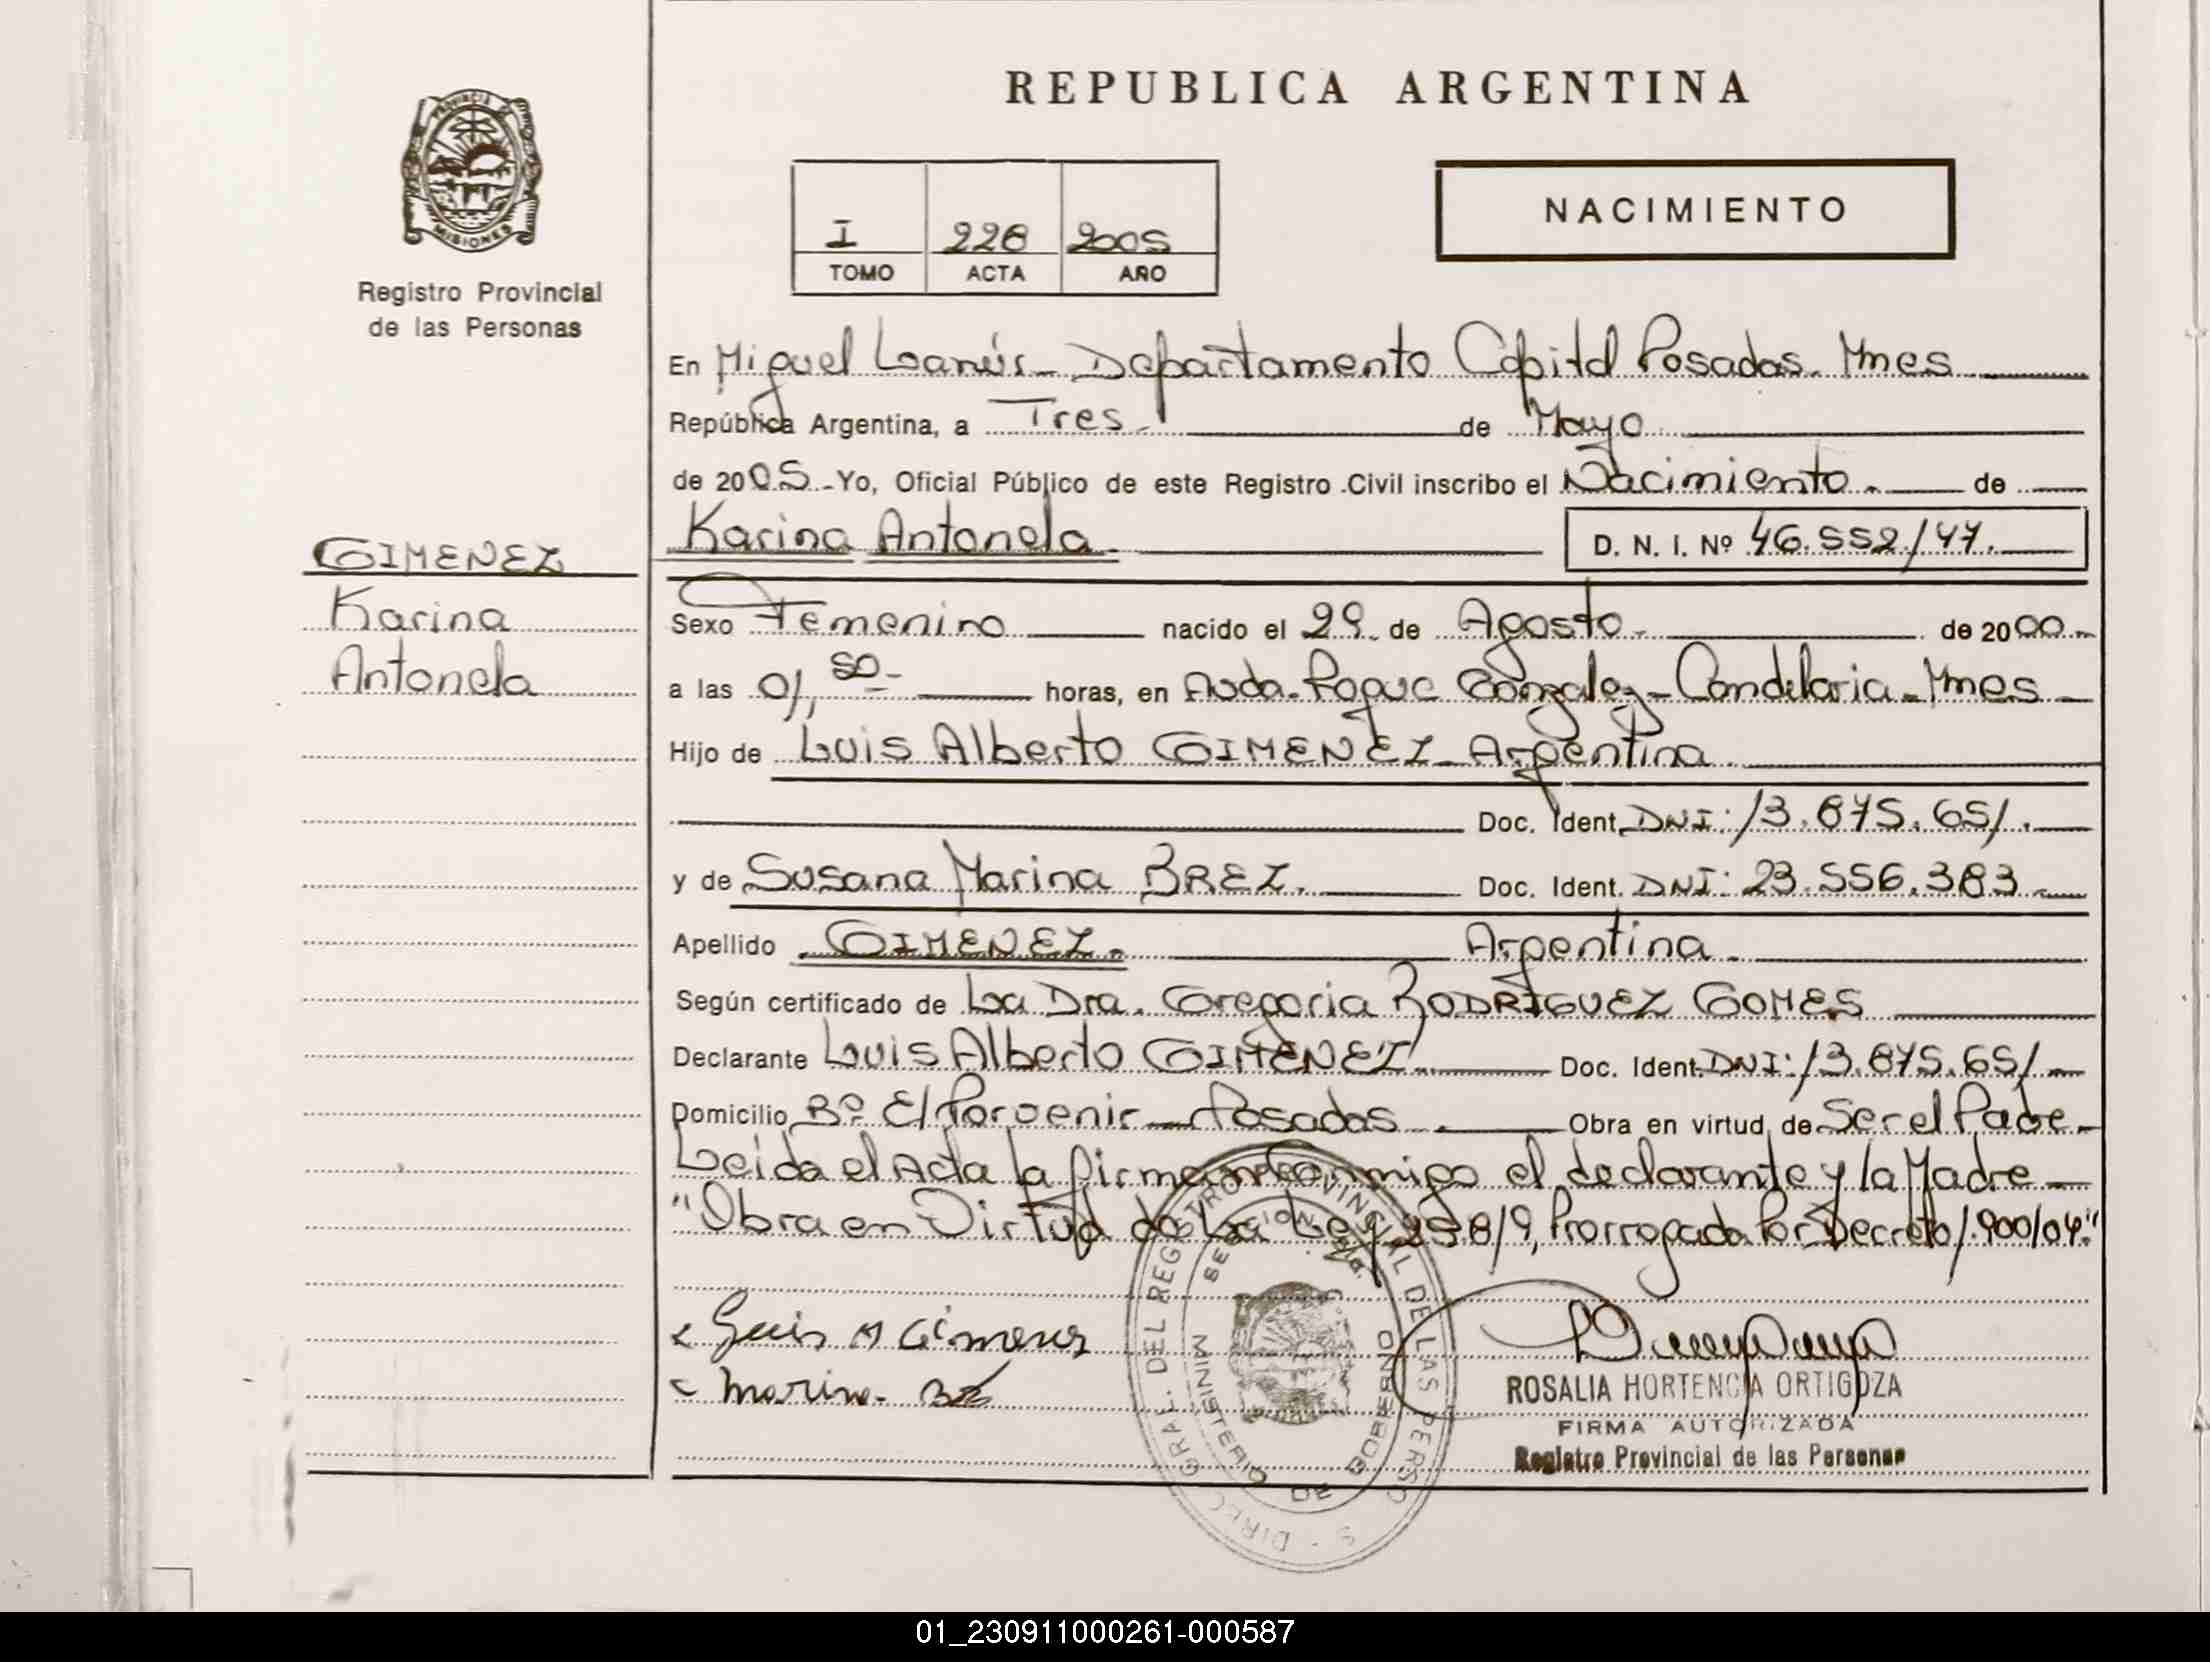 REPUBLICA ARGENTINA
PROVINCIA DE
MISIONES
Registro Provincial
de las Personas
I 226 2005
TOMO ACTA AÑO
NACIMIENTO
En Miguel Lanús - Departamento Capital Posadas. Mnes
República Argentina, a Tres de Mayo
de 2005 Yo, Oficial Público de este Registro Civil inscribo el Nacimiento de
Karina Antonela D. N. I. Nº 46.552/47.
GIMENEZ
Karina
Antonela
Sexo Femenino nacido el 29 de Agosto de 2000
a las 01,50 horas, en Avda. Roque Gonzalez - Candelaria - Mnes
Hijo de Luis Alberto GIMENEZ - Argentina
Doc. Ident. DNI: 13.875.651.
y de Susana Marina BREZ. Doc. Ident. DNI: 23.556.383
Apellido GIMENEZ. Argentina
Según certificado de La Dra. Gregoria RODRIGUEZ GOMES
Declarante Luis Alberto GIMENEZ Doc. Ident. DNI: 13.875.651
Domicilio Bº El Porvenir - Posadas Obra en virtud de Ser el Padre
Leida el Acta la firman conmigo el declarante y la Madre
"Obra en Virtud de La Ley 25819, Prorrogada Por Decreto 1.900/04."
Luis A Gimenez
Marina Brez
DIREC GRAL. DEL REGISTRO PROVINCIAL DE LAS PERSONAS
MINISTERIO DE GOBIERNO
ROSALIA HORTENCIA ORTIGOZA
FIRMA AUTORIZADA
Registro Provincial de las Personas
01_230911000261-000587